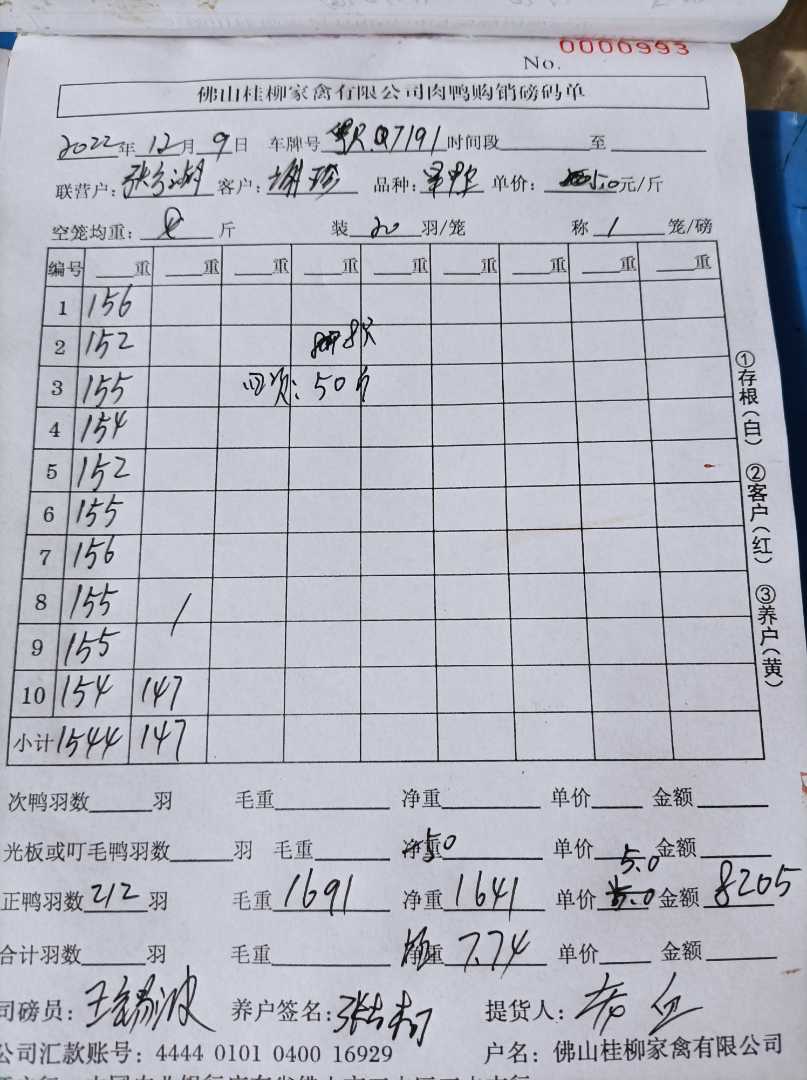 No. 0000993
佛山桂柳家禽有限公司肉鸭购销磅码单
2022年12月9日 车牌号粤R.Q7191时间段 至
联营户: 客户: 品种: 单价: 5.0元/斤
空笼均重: 斤 装20羽/笼 称1笼/磅
编号 重 重 重 重 重 重 重 重 重
1 156
2 152 8只
3 155 四次:50斤
4 154
5 152
6 155
7 156
8 155
9 155
10 154 147
小计 1544 147
①存根(白) ②客户(红) ③养户(黄)
次鸭羽数 羽 毛重 净重 单价 金额
光板或叮毛鸭羽数 羽 毛重 净重 50 单价 金额
正鸭羽数212羽 毛重1691 净重1641 单价5.0 金额8205
合计羽数 羽 毛重 净重7.74 单价 金额
司磅员: 养户签名: 提货人:
公司汇款账号: 4444 0101 0400 16929 户名: 佛山桂柳家禽有限公司